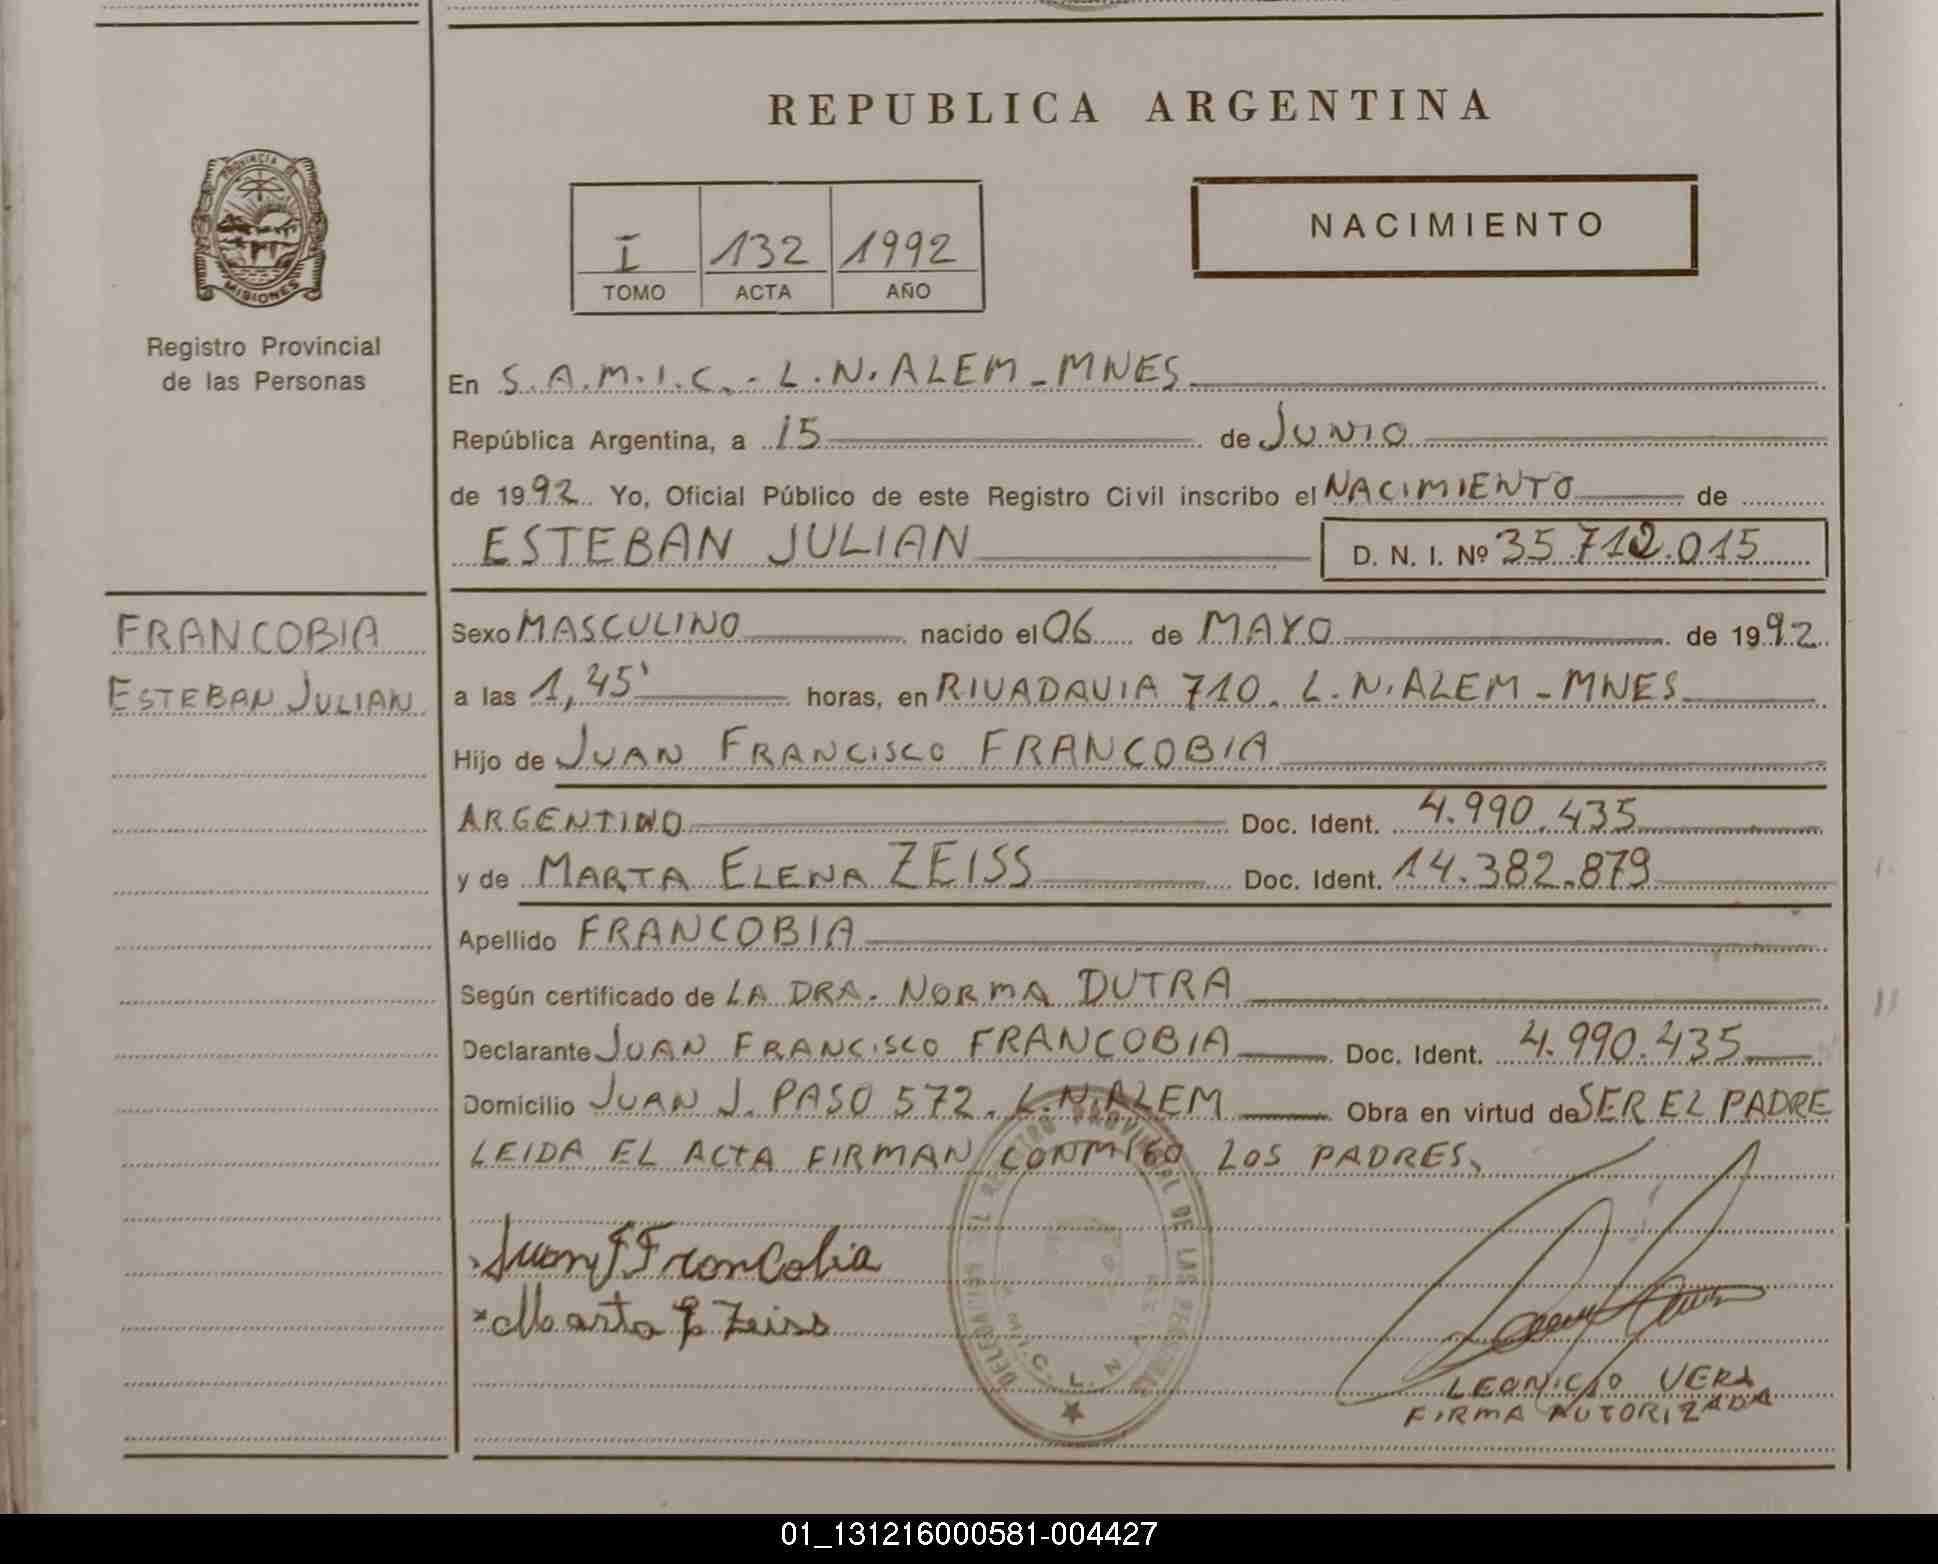 REPUBLICA ARGENTINA
PROVINCIA DE
MISIONES
Registro Provincial
de las Personas
I 132 1992
TOMO ACTA AÑO
NACIMIENTO
En S.A.M.I.C. - L.N. ALEM - MNES
República Argentina, a 15 de JUNIO
de 1992 Yo, Oficial Público de este Registro Civil inscribo el NACIMIENTO de
ESTEBAN JULIAN D. N. I. Nº 35.712.015
FRANCOBIA
ESTEBAN JULIAN
Sexo MASCULINO nacido el 06 de MAYO de 1992
a las 1,45' horas, en RIVADAVIA 710. L.N. ALEM - MNES
Hijo de JUAN FRANCISCO FRANCOBIA
ARGENTINO Doc. Ident. 4.990.435
y de MARTA ELENA ZEISS Doc. Ident. 14.382.879
Apellido FRANCOBIA
Según certificado de LA DRA. NORMA DUTRA
Declarante JUAN FRANCISCO FRANCOBIA Doc. Ident. 4.990.435
Domicilio JUAN J. PASO 572. L.N. ALEM Obra en virtud de SER EL PADRE
LEIDA EL ACTA FIRMAN CONMIGO LOS PADRES.
Juan F Francobia
Marta E Zeiss
LEONICIO VERA
FIRMA AUTORIZADA
01_131216000581-004427